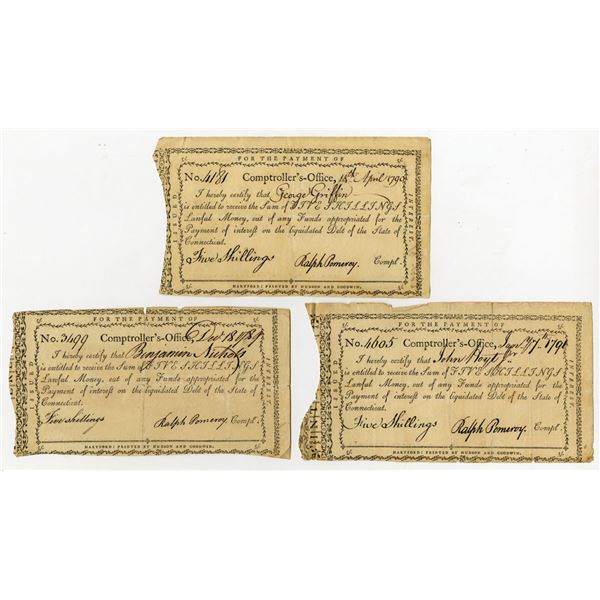 FOR THE PAYMENT OF
No. 4181 Comptroller's-Office, 18th April 1790
I hereby certify that George Griffin
is entitled to receive the Sum of FIVE SHILLINGS
Lawful Money, out of any Funds appropriated for the
Payment of interest on the liquidated Debt of the State of
Connecticut.
Five Shillings Ralph Pomeroy. Compt.
HARTFORD: PRINTED BY HUDSON AND GOODWIN.
ISSUED
INTEREST
FOR THE PAYMENT OF
No. 3699 Comptroller's-Office, Decr 18 1789
I hereby certify that Benjamin Nichols
is entitled to receive the Sum of FIVE SHILLINGS
Lawful Money, out of any Funds appropriated for the
Payment of interest on the liquidated Debt of the State of
Connecticut.
Five shillings Ralph Pomeroy. Compt.
HARTFORD: PRINTED BY HUDSON AND GOODWIN.
ISSUED
INTEREST
FOR THE PAYMENT OF
No. 4605 Comptroller's-Office, 1791
I hereby certify that John Hoyt Jr.
is entitled to receive the Sum of FIVE SHILLINGS
Lawful Money, out of any Funds appropriated for the
Payment of interest on the liquidated Debt of the State of
Connecticut.
Five Shillings Ralph Pomeroy. Compt.
HARTFORD: PRINTED BY HUDSON AND GOODWIN.
ISSUED
INTEREST